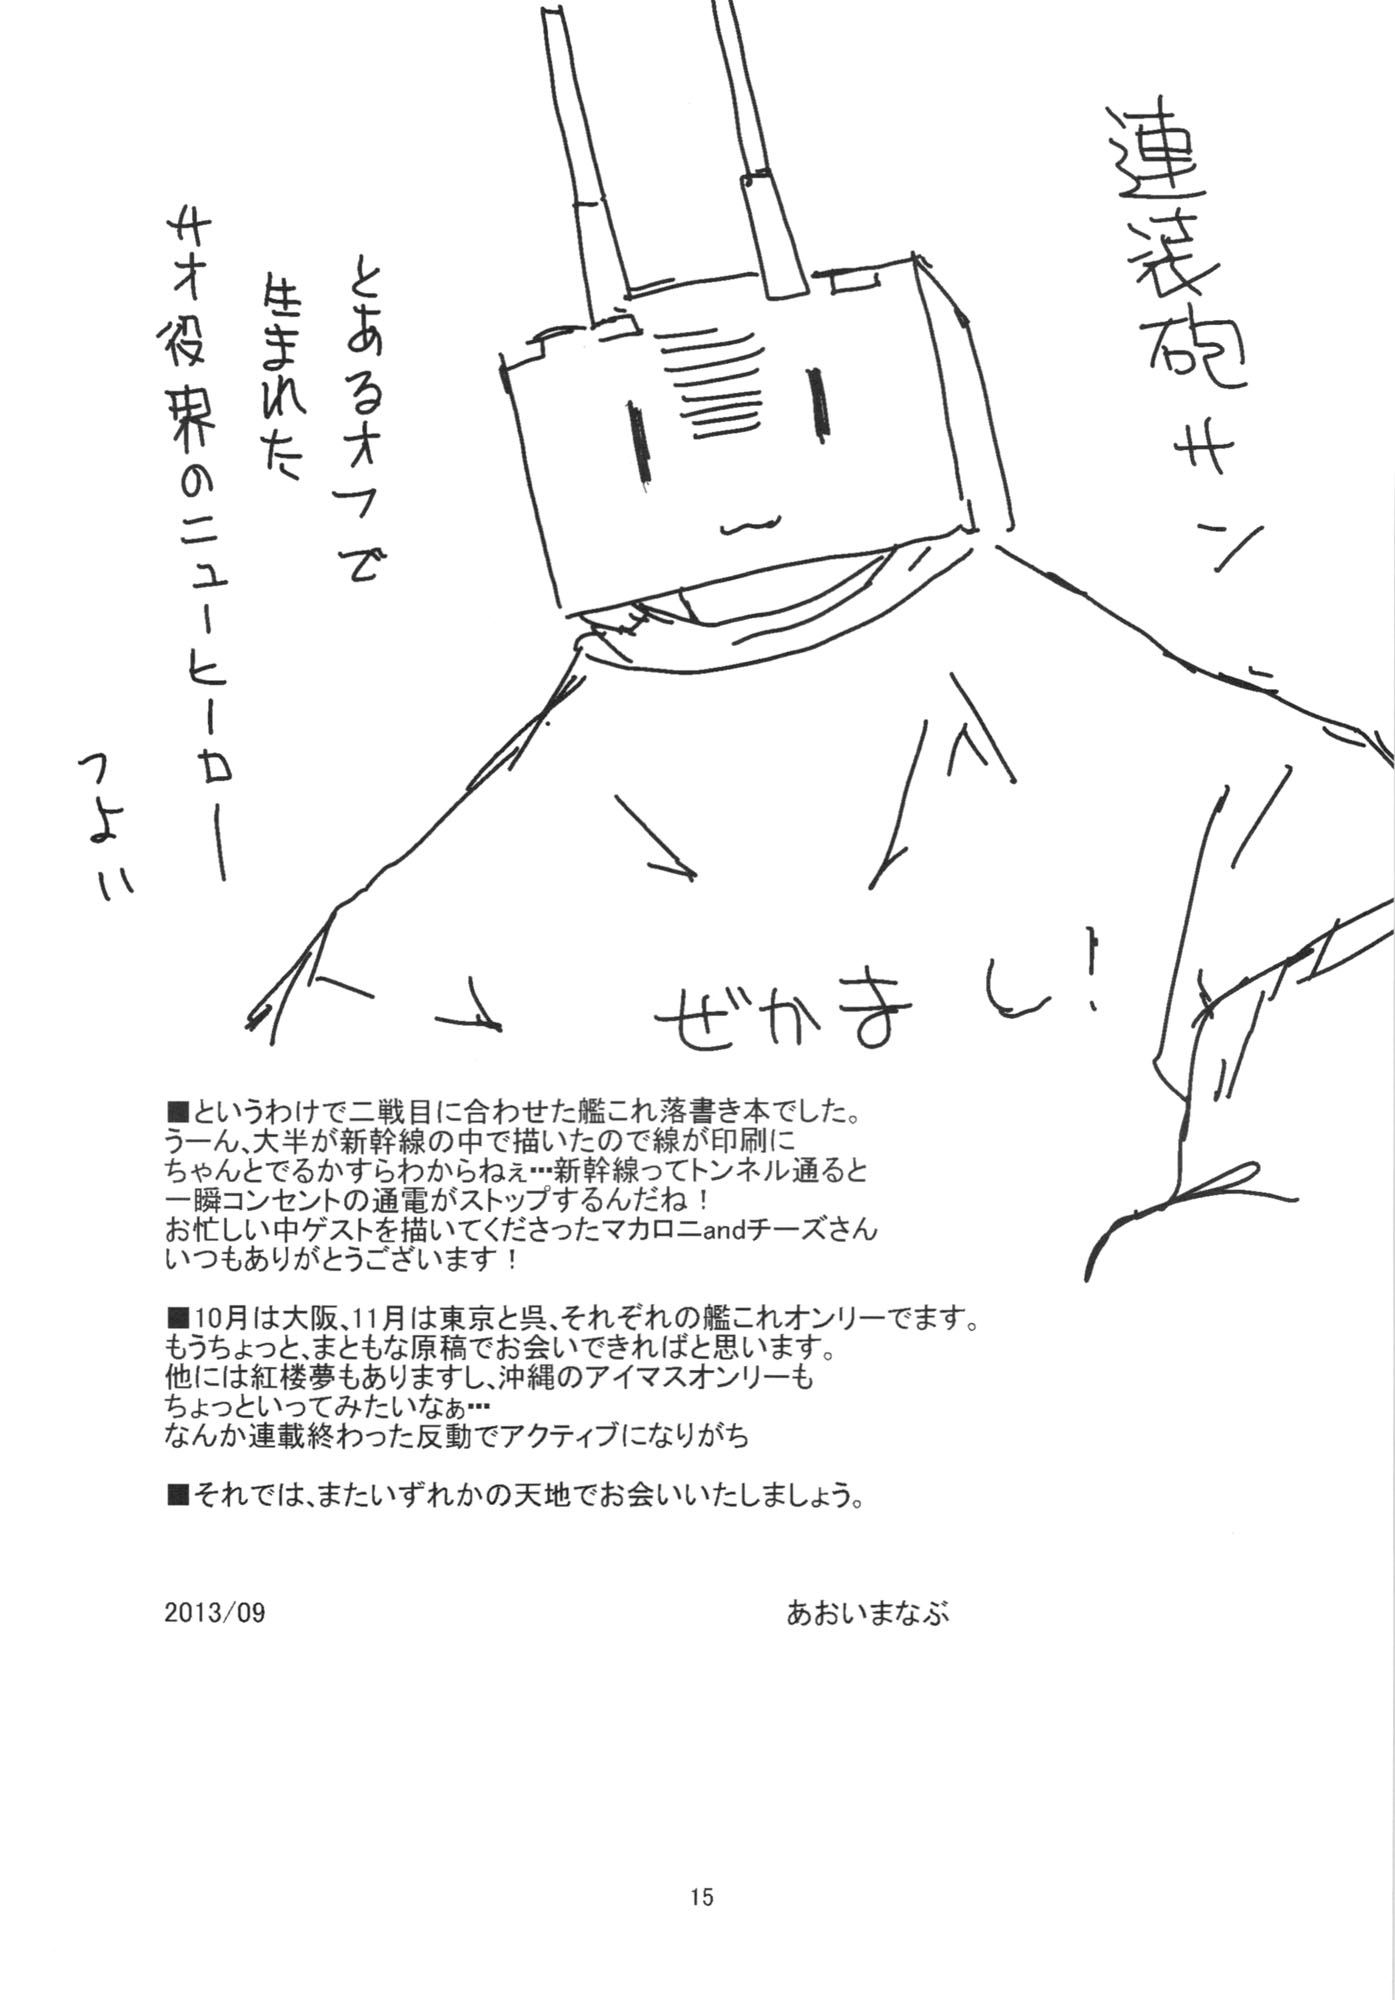 連装砲サン
とあるオフで
生まれた
サオ役界のニューヒーロー
つよい
ぜかまし!
■というわけで二戦目に合わせた艦これ落書き本でした。
うーん、大半が新幹線の中で描いたので線が印刷に
ちゃんとでるかすらわからねぇ…新幹線ってトンネル通ると
一瞬コンセントの通電がストップするんだね！
お忙しい中ゲストを描いてくださったマカロニandチーズさん
いつもありがとうございます！
■10月は大阪、11月は東京と呉、それぞれの艦これオンリーでます。
もうちょっと、まともな原稿でお会いできればと思います。
他には紅楼夢もありますし、沖縄のアイマスオンリーも
ちょっといってみたいなぁ…
なんか連載終わった反動でアクティブになりがち
■それでは、またいずれかの天地でお会いいたしましょう。
2013/09
あおいまなぶ
15